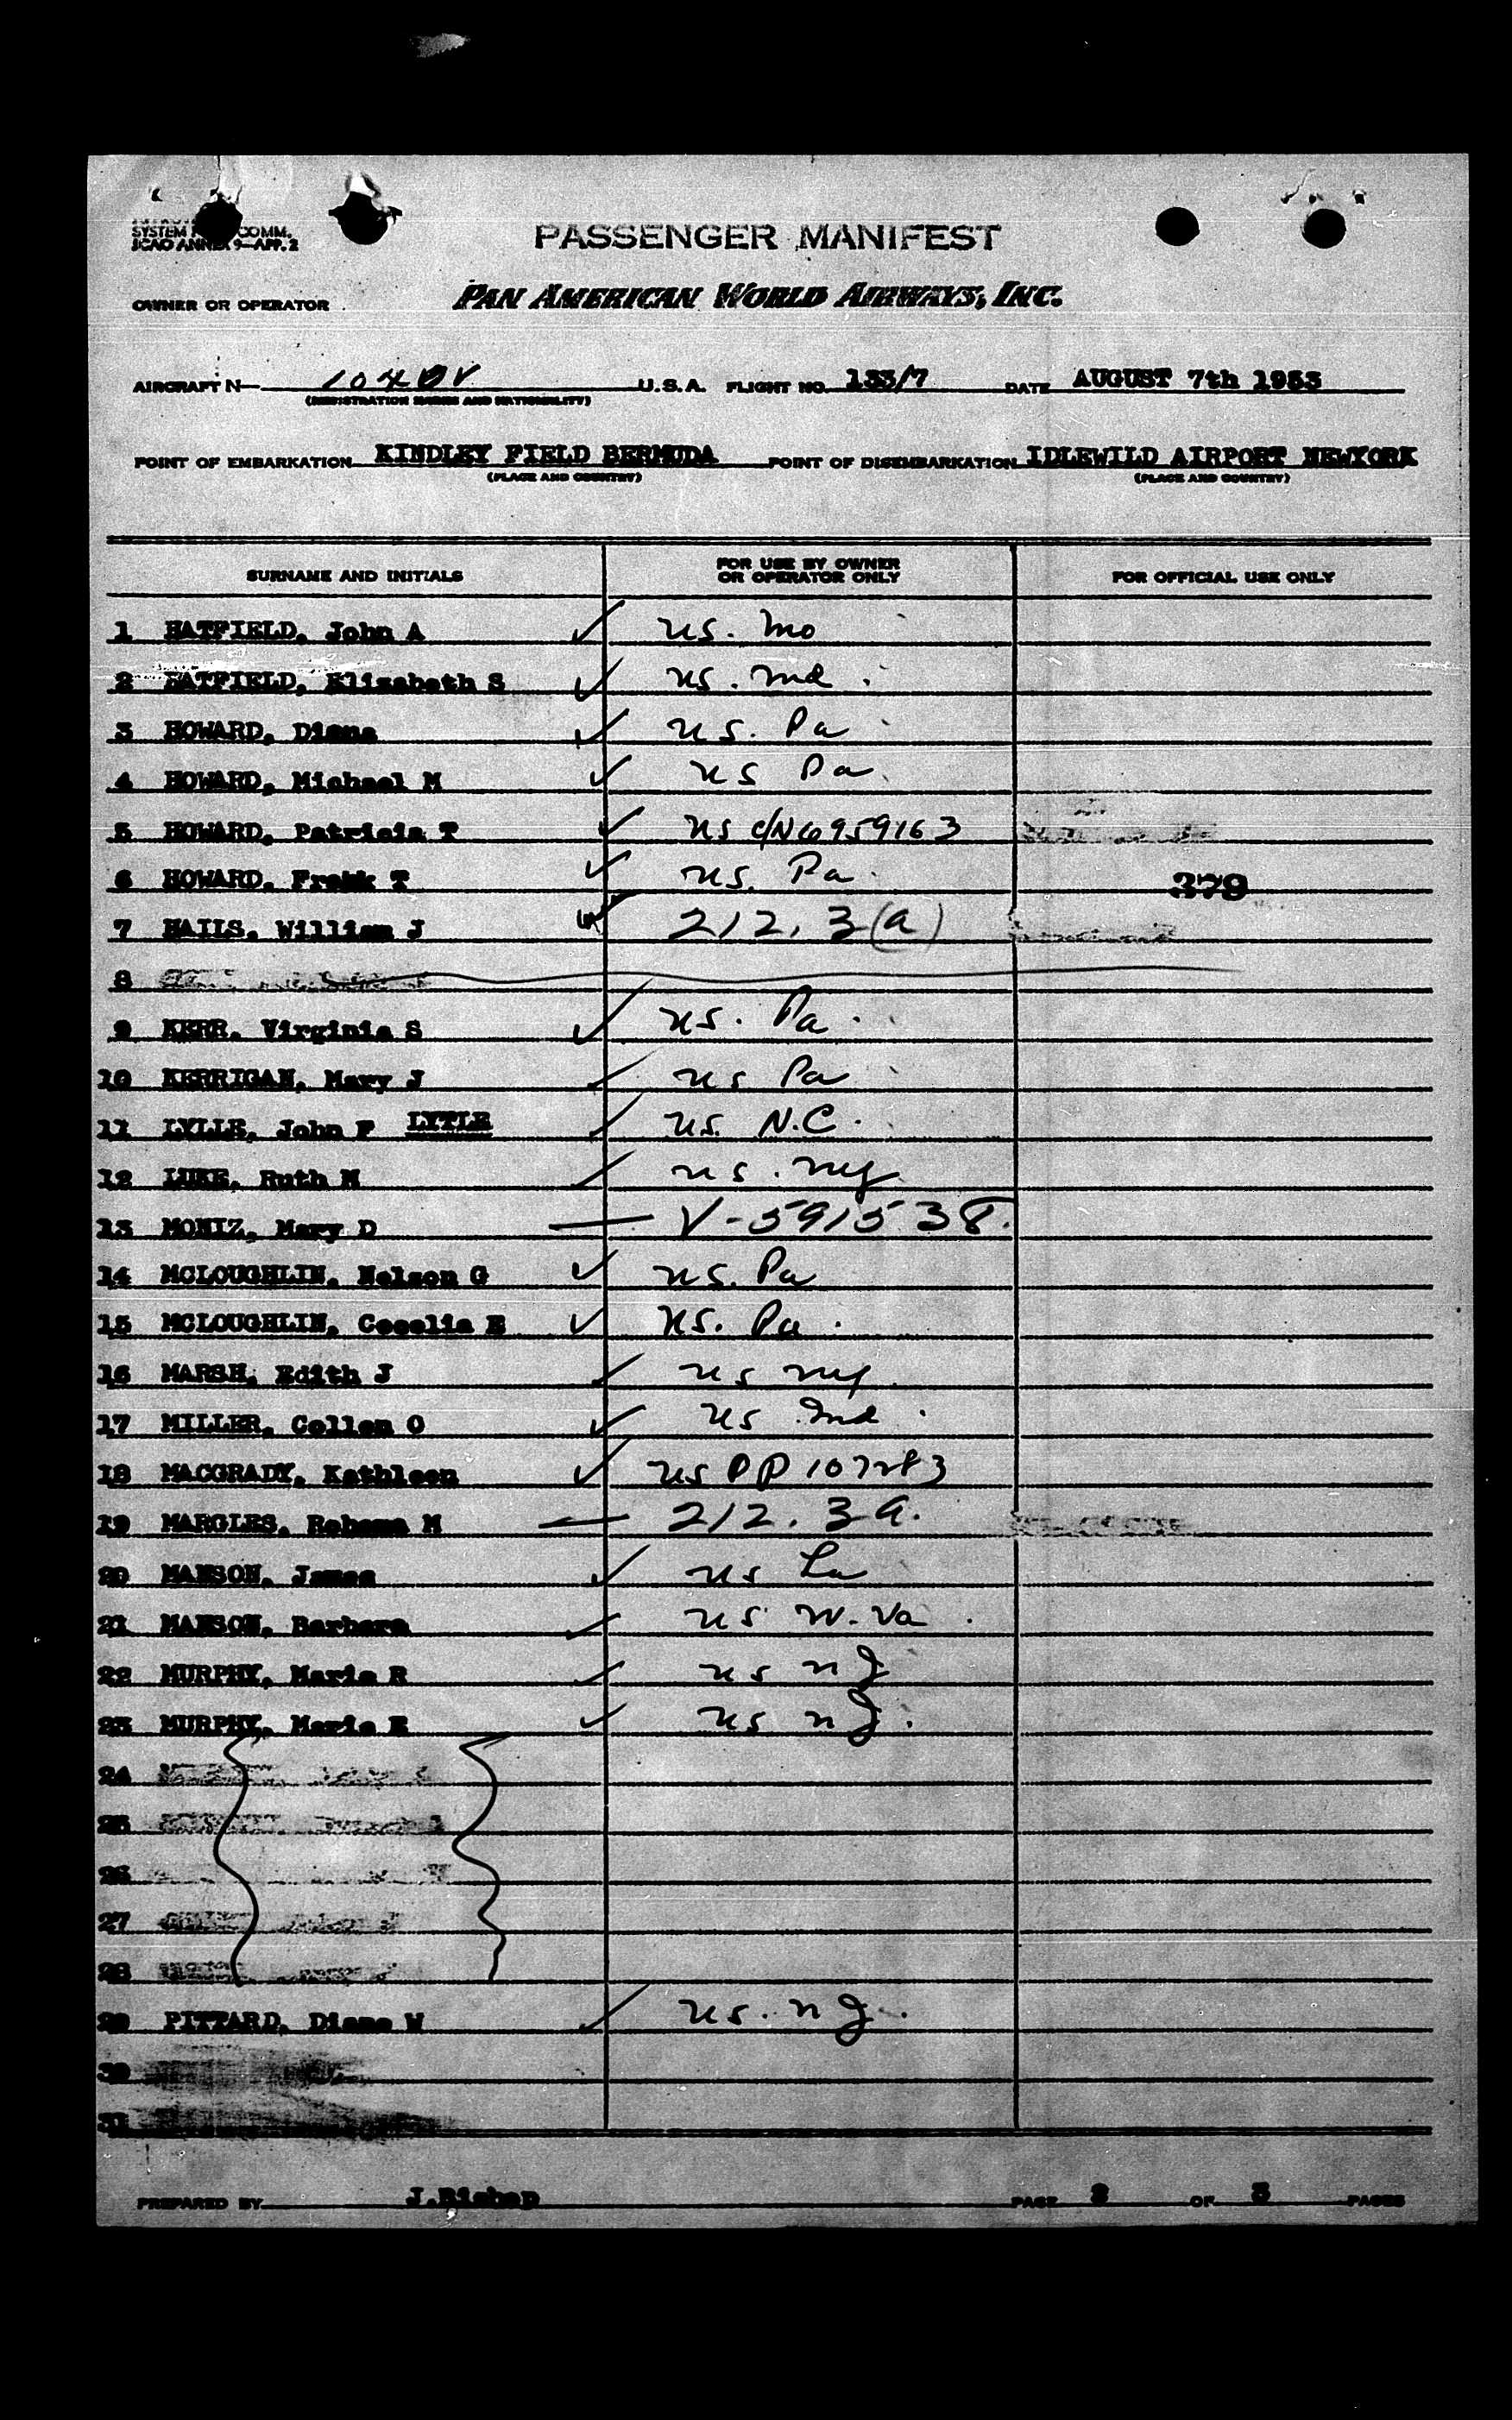 SYSTEM COMM.
ICAO ANNEX 9—APP. 2
PASSENGER MANIFEST
OWNER OR OPERATOR PAN AMERICAN WORLD AIRWAYS, INC.
AIRCRAFT N— U.S.A. FLIGHT NO. 133/7 DATE AUGUST 7th 1953
(REGISTRATION MARKS AND NATIONALITY)
POINT OF EMBARKATION KINDLEY FIELD BERMUDA POINT OF DISEMBARKATION IDLEWILD AIRPORT NEWYORK
(PLACE AND COUNTRY) (PLACE AND COUNTRY)
SURNAME AND INITIALS FOR USE BY OWNER OR OPERATOR ONLY FOR OFFICIAL USE ONLY
1 HATFIELD, John A ✓ US. Mo
2 HATFIELD, Elizabeth S ✓ US. Md.
3 HOWARD, Diana ✓ US. Pa
4 HOWARD, Michael M ✓ US Pa.
5 HOWARD, Patricia T ✓ US C/N 6959163
6 HOWARD, Frank T ✓ US. Pa. 379
7 HAILS, William J 212.3(a)
8
9 KERR, Virginia S ✓ US. Pa.
10 KERRIGAN, Mary J ✓ US Pa
11 LYLLE, John F LYTLE ✓ US. N.C.
12 LUKE, Ruth M ✓ US. NY
13 MONIZ, Mary D — V-591538.
14 MCLOUGHLIN, Nelson G ✓ US. Pa
15 MCLOUGHLIN, Cecelia E ✓ US. Pa.
16 MARSH, Edith J ✓ US NY
17 MILLER, Collen O ✓ US Ind.
18 MACGRADY, Kathleen ✓ US PP 107283
19 MARGLES, Rehema M — 212.3a.
20 MANSON, James ✓ US La
21 MANSON, Barbara ✓ US W.Va.
22 MURPHY, Marie R ✓ US NJ
23 MURPHY, Marie E ✓ US NJ.
24
25
26
27
28
29 PITTARD, Diane W ✓ US. NJ.
30
31
PREPARED BY J.Bishop PAGE 2 OF 3 PAGES